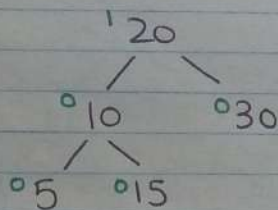 1 20
0 10 0 30
0 5 0 15